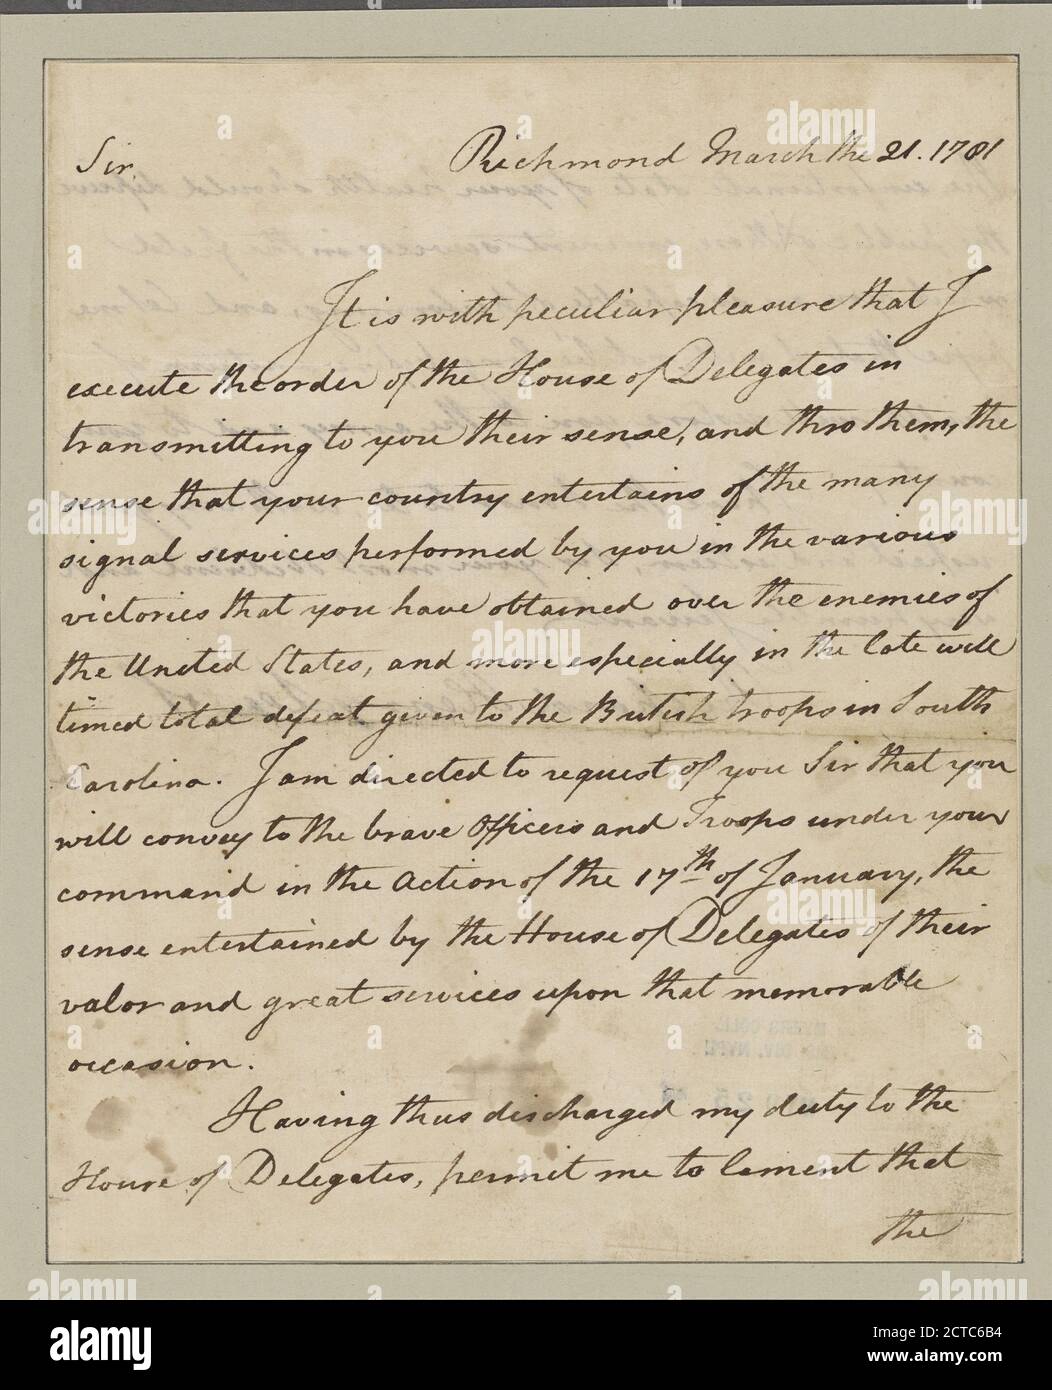 Sir. Richmond March the 21. 1781
It is with peculiar pleasure that I
execute the order of the House of Delegates in
transmitting to you their sense, and thro them, the
sense that your country entertains of the many
signal services performed by you in the various
victories that you have obtained over the enemies of
the United States, and more especially in the late well
timed total defeat given to the British troops in South
Carolina. I am directed to request of you Sir that you
will convey to the brave Officers and Troops under your
command in the Action of the 17th of January, the
sense entertained by the House of Delegates of their
valor and great services upon that memorable
occasion.
Having thus discharged my duty to the
House of Delegates, permit me to lament that
the
alamy
Image ID: 2CTC6B4
www.alamy.com